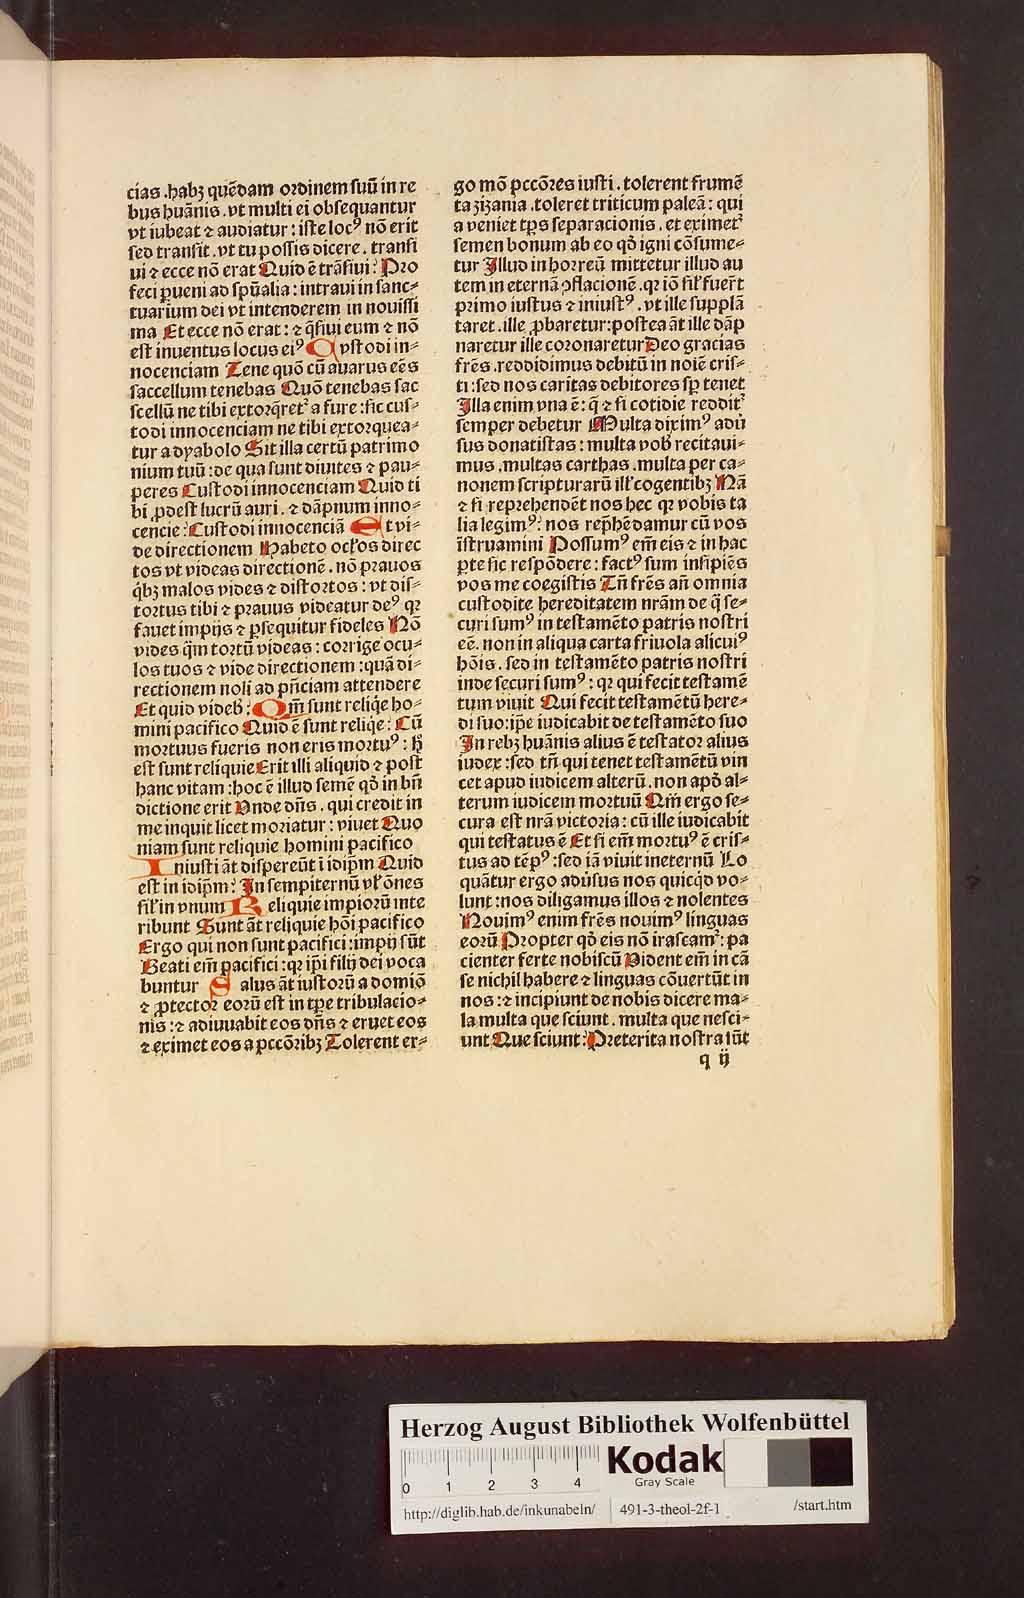 cias . habꝫ quēdam ordinem suū in re
bus huānis . vt multi ei obsequantur
vt iubeat ⁊ audiatur : iste locꝰ nō erit
sed transit . vt tu possis dicere . transi
ui ⁊ ecce nō erat Quid ē trāsiui : Pro
feci ꝑueni ad spūalia : intraui in sanc⸗
tuarium dei vt intenderem in nouissi
ma Et ecce nō erat : ⁊ q̄siui eum ⁊ nō
est inuentus locus eiꝰ Custodi in⸗
nocenciam Tene quō cū auarus eēs
saccellum tenebas Quō tenebas sac
scellū ne tibi extorqret᷑ a fure : sic cus⸗
todi innocenciam ne tibi extorquea⸗
tur a dyabolo Sit illa certū patrimo
nium tuū : de qua sunt diuites ⁊ pau⸗
peres Custodi innocenciam Quid ti
bi ꝓdest lucrū auri . ⁊ dāpnum inno⸗
cencie : Custodi innocenciā Et vi⸗
de directionem Habeto ocl'os direc
tos vt videas directionē . nō prauos
q̇bꝫ malos vides ⁊ distortos : vt dis⸗
tortus tibi ⁊ prauus videatur deꝰ qꝛ
fauet impijs ⁊ ꝑsequitur fideles Nō
vides q̄m tortū videas : corrige ocu⸗
los tuos ⁊ vide directionem : quā di⸗
rectionem noli ad pn̄ciam attendere
Et quid videb' : Qm̄ sunt reliq̇e ho⸗
mini pacifico Quid ē sunt reliq̇e : Cū
mortuus fueris non eris mortuꝰ : h̄
est sunt reliquie Erit illi aliquid ⁊ post
hanc vitam : hoc ē illud semē qd̄ in bn̄
dictione erit Vnde dn̄s . qui credit in
me inquit licet moriatur : viuet Quo
niam sunt reliquie homini pacifico
Iniusti āt dispereūt ī idip̄m Quid
est in idip̄m : In sempiternū vl' ōnes
sil' in vnum Reliquie impiorū inte
ribunt Sunt āt reliquie hōi pacifico
Ergo qui non sunt pacifici : impij sūt
Beati em̄ pacifici : qꝛ ip̄i filij dei voca
buntur Salus āt iustorū a domiō
⁊ ꝓtector eorū est in tꝑe tribulacio⸗
nis : ⁊ adiuuabit eos dn̄s ⁊ eruet eos
⁊ eximet eos a pccōribꝫ Tolerent er⸗
go mō pccōres iusti . tolerent frumē
ta zizania . toleret triticum paleā : qui
a veniet tꝑs separacionis . et eximet᷑
semen bonum ab eo qd̄ igni cōsume⸗
tur Illud in horreū mittetur illud au
tem in eternā ꝯflacionē . qꝛ iō sil' fuer̄t
primo iustus ⁊ iniustꝰ . vt ille supplā
taret . ille ꝓbaretur : postea āt ille dāp
naretur ille coronaretur Deo gracias
frēs . reddidimus debitū in noīe cris⸗
ti : sed nos caritas debitores sp̄ tenet
Illa enim vna ē : q̄ ⁊ si cotidie reddit᷑
semper debetur Multa diximꝰ adu̇
sus donatistas : multa vob' recitaui⸗
mus . multas carthas . multa per ca⸗
nonem scripturarū ill' cogentibꝫ Nā
⁊ si reprehendēt nos hec qꝛ vobis ta
lia legimꝰ : nos rep̄hēdamur cū vos
īstruamini Possumꝰ em̄ eis ⁊ in hac
ꝑte sic respōdere : factꝰ sum insipiēs
vos me coegistis Tn̄ frēs an̄ omnia
custodite hereditatem nrām de q̄ se⸗
curi sumꝰ in testamēto patris nostri
eē . non in aliqua carta friuola alicuiꝰ
hōis . sed in testamēto patris nostri
inde securi sumꝰ : qꝛ qui fecit testamē
tum viuit Qui fecit testamētū here⸗
di suo : ip̄e iudicabit de testamēto suo
In rebꝫ huānis alius ē testator alius
iudex : sed tn̄ qui tenet testamētū vin
cet apud iudicem alterū . non apd̄ al⸗
terum iudicem mortuū Qm̄ ergo se⸗
cura est nrā victoria : cū ille iudicabit
qui testatus ē Et si em̄ mortuꝰ ē cris⸗
tus ad tēpꝰ : sed iā viuit ineternū Lo
quātur ergo adu̇sus nos quicq̇d vo⸗
lunt : nos diligamus illos ⁊ nolentes
Nouimꝰ enim frēs nouimꝰ linguas
eorū Propter qd̄ eis nō irascam᷑ : pa
cienter ferte nobiscū Vident em̄ in cā
se nichil habere ⁊ linguas cōuertūt in
nos : ⁊ incipiunt de nobis dicere ma⸗
la multa que sciunt . multa que nesci⸗
unt Que sciunt : Preterita nostra sūt
q ij
Herzog August Bibliothek Wolfenbüttel
0 1 2 3 4
Kodak
Gray Scale
http://diglib.hab.de/inkunabeln/ 491-3-theol-2f-1 /start.htm